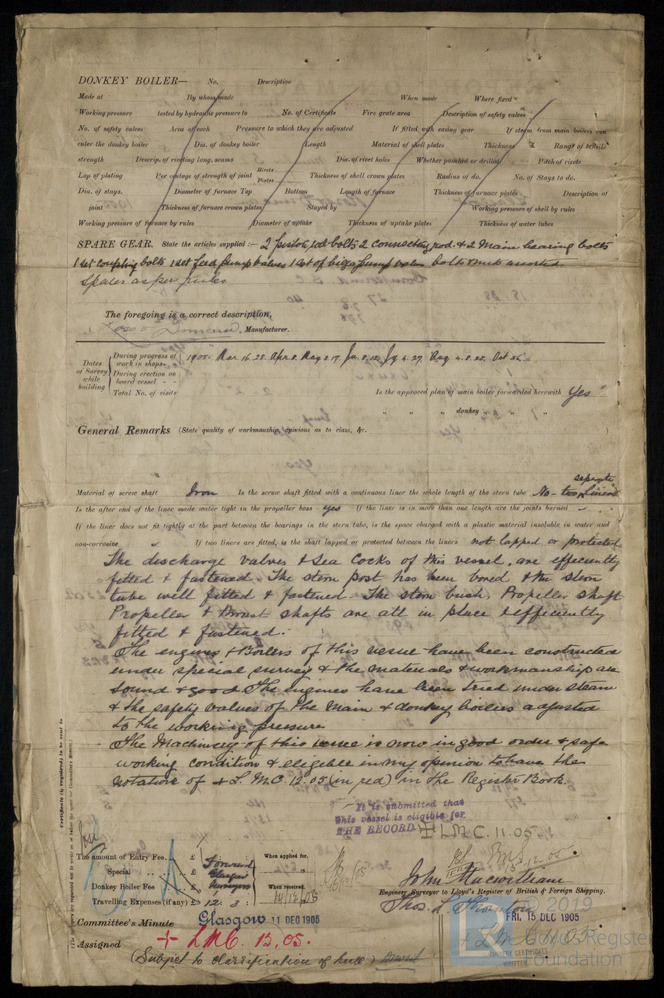 DONKEY BOILER— No. Description
Made at By whom made When made Where fixed
Working pressure tested by hydraulic pressure to No. of Certificate Fire grate area Description of safety valves
No. of safety valves Area of each Pressure to which they are adjusted If fitted with easing gear If steam from main boilers can
enter the donkey boiler Dia. of donkey boiler Length Material of shell plates Thickness Range of tensile
strength Descrip. of riveting long. seams Dia. of rivet holes Whether punched or drilled Pitch of rivets
Lap of plating Per centage of strength of joint Rivets Plates Thickness of shell crown plates Radius of do. No. of Stays to do.
Dia. of stays. Diameter of furnace Top Bottom Length of furnace Thickness of furnace plates Description of
joint Thickness of furnace crown plates Stayed by Working pressure of shell by rules
Working pressure of furnace by rules Diameter of uptake Thickness of uptake plates Thickness of water tubes
SPARE GEAR. State the articles supplied:— 2 piston rod bolts 2 connecting rod & 2 Main bearing bolts
1 set coupling bolts 1 set feed pump valves 1 set of bilge pump valves bolts & nuts assorted
The foregoing is a correct description,
Manufacturer.
Dates of Survey while building
During progress of work in shops - -
During erection on board vessel - -
Total No. of visits
1905. Mar 16. 28. Apr 8. May 8. 17. Jun 8. 12. Jy 4. 27. Aug 4. 8. 22. Oct 26
Is the approved plan of main boiler forwarded herewith Yes
" " " donkey " " "
General Remarks (State quality of workmanship, opinions as to class, &c.
Material of screw shaft Iron Is the screw shaft fitted with a continuous liner the whole length of the stern tube No - two separate Liners
Is the after end of the liner made water tight in the propeller boss yes If the liner is in more than one length are the joints burned
If the liner does not fit tightly at the part between the bearings in the stern tube, is the space charged with a plastic material insoluble in water and
non-corrosive If two liners are fitted, is the shaft lapped or protected between the liners not lapped or protected
The discharge valves & Sea Cocks of this vessel, are efficiently
fitted & fastened. The stern post has been bored & the stern
tube well fitted & fastened. The stern bush, Propeller shaft
Propeller & Thrust shafts are all in place & efficiently
fitted & fastened.
The engines & Boilers of this vessel have been constructed
under special survey & the materials & workmanship are
sound & good. The engines have been tried under steam
& the safety valves of the main & donkey boilers adjusted
to the working pressure
The Machinery of this vessel is now in good order & safe
working condition & eligible in my opinion to have the
notation of + L.M.C. 12.05 (in red) in the Register Book.
It is submitted that
this vessel is eligible for
THE RECORD + L.M.C. 11.05.
The amount of Entry Fee . . £
Special . . . . £
Donkey Boiler Fee . . . £
Travelling Expenses (if any) £ 12 : 3 :
When applied for,
When received,
Engineer Surveyor to Lloyd's Register of British & Foreign Shipping.
Committee's Minute Glasgow 11 DEC 1905
FRI. 15 DEC 1905
Assigned + L.M.C. 12,05.
+ L.M.C. 11.05.
(Subject to classification of hull)
© 2019
Lloyd's Register
Foundation